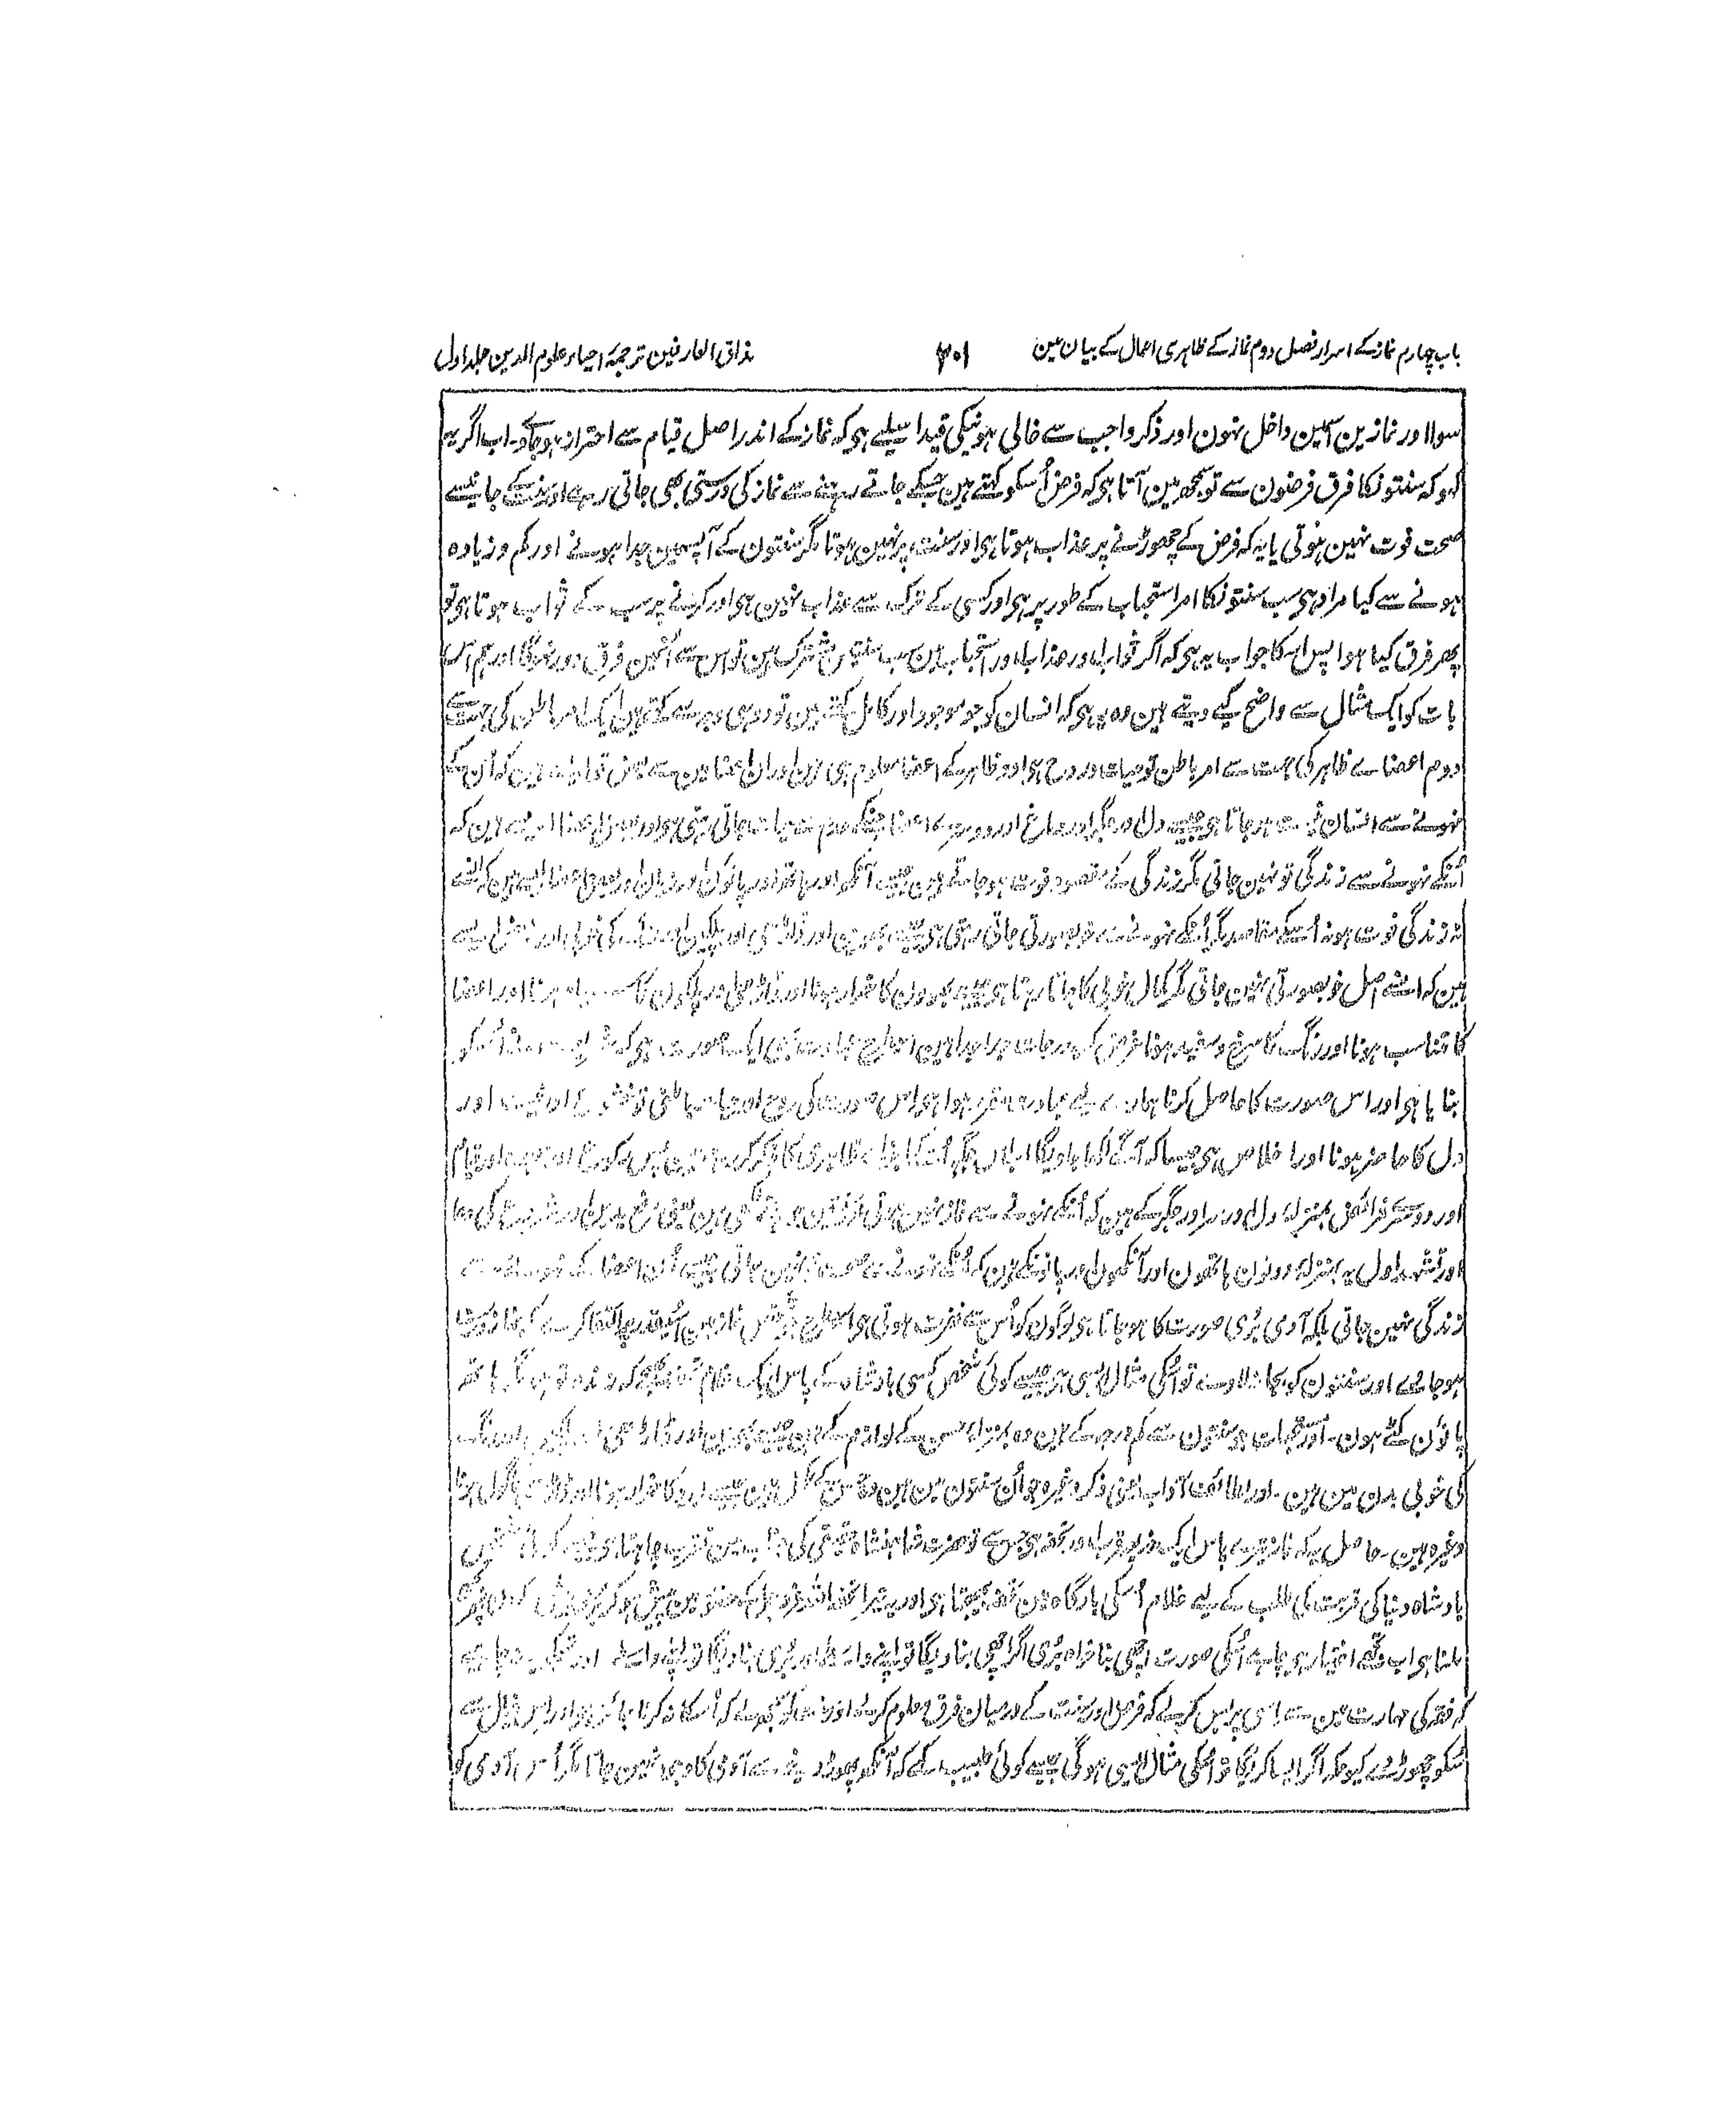 باب چہارم نماز کے اسرار فصل دوم نماز کے ظاہری اعمال کے بیان مین
۳۰۱
مذاق العارفین ترجمۂ احیاء علوم الدین جلد اول
سوا اور نمازین آسمین داخل نہون اور ذکر واجب سے خالی ہونیکی قید اسلیے ہی کہ نماز کے اندر اصل قیام سے احتراز ہوجاوے۔ اب اگر یہ
کہو کہ سنتونکا فرق فرضون سے تو سمجھ مین آتا ہی کہ فرض اُسکو کہتے ہین جسکے جاتے رہنے سے نماز کی درستی بھی جاتی رہے اور سنت کے جانیسے
صحت فوت نہین ہوتی یا یہ کہ فرض کے چھوڑنے پر عذاب ہوتا ہی اور سنت پر نہین ہوتا مگر سنتون کے آپسمین جدا ہونے اور کم و زیادہ
ہونے سے کیا مراد ہی سب سنتونکا امر استحباب کے طور پر ہی اور کسی کے ترک سے عذاب نہین ہی اور کرنے پر سب کے ثواب ہوتا ہی تو
پھر فرق کیا ہوا پس اسکا جواب یہ ہی کہ اگر ثواب اور عذاب اور استحباب مین سب سنتین مشترک ہین تو اس سے اُنمین فرق دور نہوگا اور ہم اس
بات کو ایک مثال سے واضح کیے دیتے ہین وہ یہ ہی کہ انسان کو جو موجود اور کامل کہتے ہین تو دو ہی وجہ سے کہتے ہین ایک امر باطن کی جہت سے
دوم اعضاے ظاہر کی جہت سے امر باطن تو حیات اور روح ہی اور ظاہر کے اعضا معلوم ہی ہین اور ان اعضا مین سے بعض تو ایسے ہین کہ اُن کے
نہونے سے انسان نیست ہوجاتا ہی جیسے دل اور جگر اور دماغ اور دوسرے اعضا جنکے عدم سے حیات جاتی رہتی ہی اور بعض اعضا ایسے ہین کہ
اُنکے نہونے سے زندگی تو نہین جاتی مگر زندگی کے مقصود فوت ہوجاتے ہین جیسے آنکھ اور ہاتھ اور پانون اور زبان اور بعض اعضا ایسے ہین کہ اُنسے
نہ زندگی فوت ہو نہ اُسکے مقاصد مگر اُنکے نہونے سے خوبصورتی جاتی رہتی ہی جیسے بھوین اور ڈاڑھی اور پلکین اور رنگ کی خوبی اور بعض ایسے
ہین کہ اُنسے اصل خوبصورتی نہین جاتی مگر کمال خوبی کا جاتا رہتا ہی جیسے بھوون کا خمدار ہونا اور ڈاڑھی اور پلکون کا سیاہ ہونا اور اعضا
کا تناسب ہونا اور رنگ کا سرخ و سفید ہونا غرض کہ درجات جدا جدا ہین اسیطرح عبادت بھی ایک صورت ہی کہ شریعت نے اُسکو
بنایا ہی اور اس صورت کا حاصل کرنا ہمارے لیے عبادت مقرر ہوا ہی اس صورت کی روح اور حیات باطنی تو خشوع اور نیت اور
دل کا حاضر ہونا اور اخلاص ہی جیسا کہ آگے لکھا جاویگا اب اس جگہ اُسکے اجزاے ظاہری کا ذکر کرتے ہین پس رکوع اور سجدے اور قیام
اور دوسرے فرائض بمنزلہ دل اور سر اور جگر کے ہین کہ اُنکے نہونے سے نماز نہین
اور تشہد اول یہ بمنزلہ دونون ہاتھون اور آنکھون اور پانونکے ہین کہ اُنکے نہونے سے صحت نہین جاتی جیسے اُن اعضا کے
زندگی نہین جاتی بلکہ آدمی بُری صورت کا ہوجاتا ہی لوگون کو اُس سے نفرت ہوتی ہی اسیطرح جو شخص نماز مین اُسیقدر پر اکتفا کرے کہ نماز درست
ہوجاے اور سنتون کو بجا نہ لاوے تو اُسکی مثال ایسی ہی جیسے کوئی شخص کسی بادشاہ کے پاس ایک غلام تحفہ بھیجے کہ وہ زندہ تو ہی مگر ہاتھ
پانون کٹے ہون۔ اور مستحبات جو سنتون سے کم درجہ کے ہین وہ بمنزلہ حسن کے لوازم کے ہین جیسے بھوین اور ڈاڑھی اور پلکین اور رنگ
کی خوبی بدن مین ہین۔ اور لطائف آداب یعنی ذکر وغیرہ جو اُن سنتون مین ہین وہ حسن کے مکمل ہین جیسے ابرو کا خمدار ہونا اور ڈاڑھی کا گول ہونا
وغیرہ ہین۔ حاصل یہ کہ نماز تیرے پاس ایک ذریعہ قرب اور تحفہ ہی جس سے تو حضرت شاہنشاہ حقیقی کی جناب مین تقرب چاہتا ہی جیسے کوئی شخص
بادشاہ دنیا کی قربت کی طلب کے لیے غلام اُسکی بارگاہ مین تحفہ بھیجتا ہی اور یہ تیرا تحفہ اللہ عز و جل کے حضور مین پیش ہوکر
ملنا ہی اب تجھے اختیار ہی چاہے اُسکی صورت اچھی بنا خواہ بُری اگر اچھی بناویگا تو اپنے واسطے اور بُری بناویگا تو اپنے واسطے اور تجکو نہ چاہیے
کہ فقہ کی مہارت مین سے اسی پر بس کرلے کہ فرض اور سنت کے درمیان فرق معلوم کرے اور سنت کو سمجھ لے کہ اُسکا نہ کرنا جائز ہی اور اس خیال سے
اُسکو چھوڑ دے کیونکہ اگر ایسا کریگا تو اُسکی مثال ایسی ہوگی جیسے کوئی طبیب کہے کہ آنکھ پھوڑ دینے سے آدمی کا وجود نہین جاتا مگر اُس آدمی کو